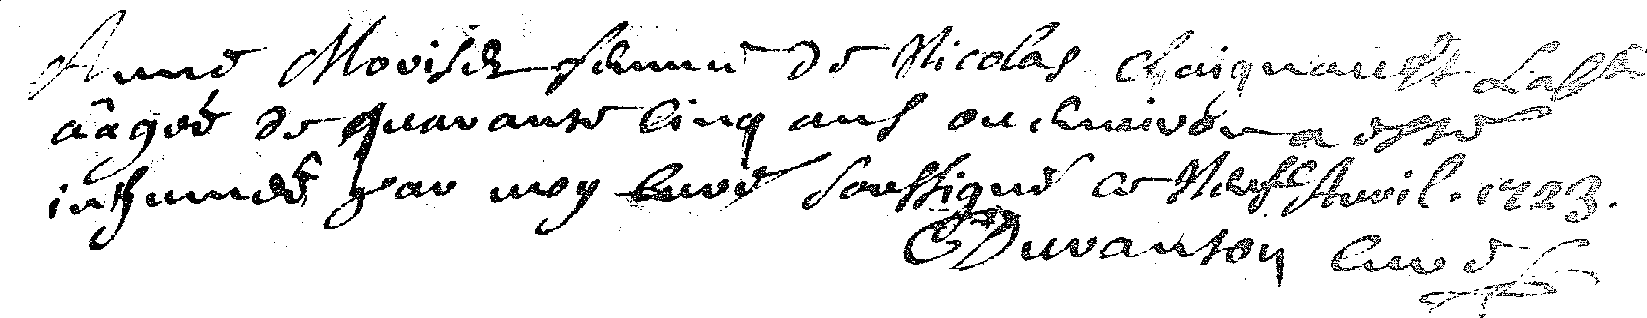 Anne Moviset femme de Nicolas Chaignault
aâgeé de quarante cinq ans ou environ a esté
inhumeé par moy curé soussigné ce Neuf Avril. 1723.
Duvanson curé